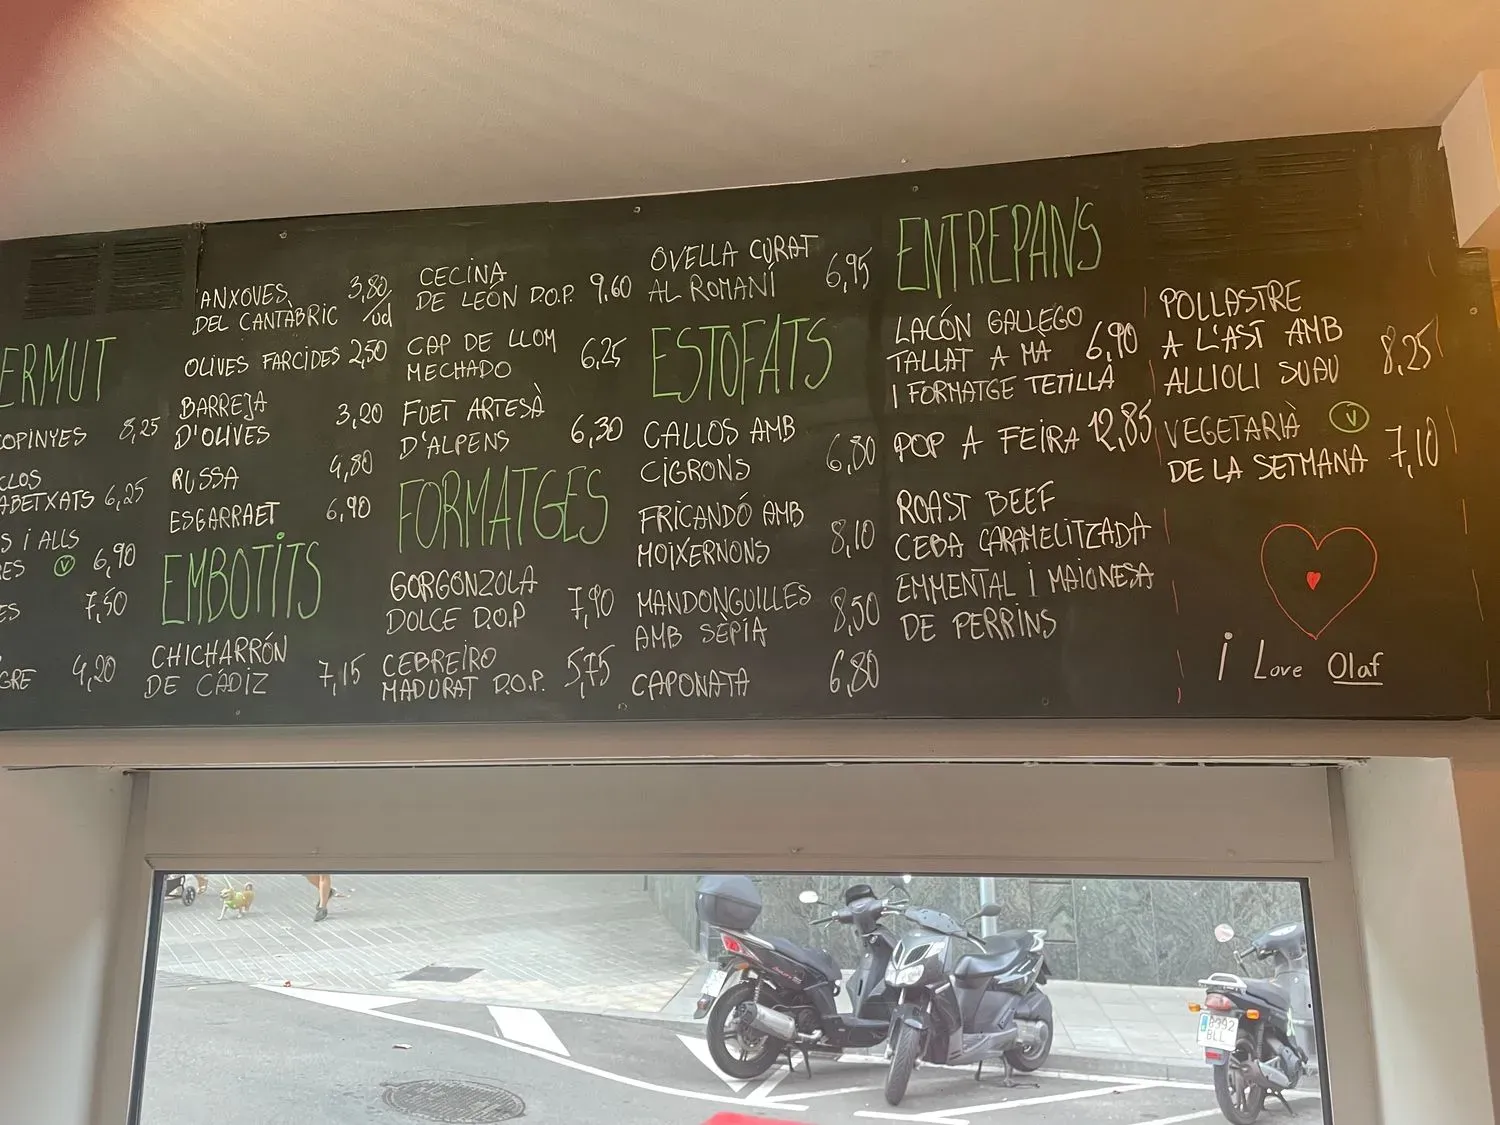 ERMUT
COPINYES 8,25
CLOS
ABETXATS 6,25
S I ALLS
RES V 6,90
ES 7,50
GRE 4,20
ANXOVES 3,80/ud
DEL CANTÀBRIC
OLIVES FARCIDES 2,50
BARREJA
D'OLIVES 3,20
RUSSA 4,80
ESGARRAET 6,90
EMBOTITS
CHICHARRÓN
DE CÁDIZ 7,15
CECINA
DE LEÓN D.O.P. 9,60
CAP DE LLOM
MECHADO 6,25
FUET ARTESÀ
D'ALPENS 6,30
FORMATGES
GORGONZOLA
DOLCE D.O.P 7,90
CEBREIRO
MADURAT D.O.P. 5,75
OVELLA CURAT
AL ROMANÍ 6,95
ESTOFATS
CALLOS AMB
CIGRONS 6,80
FRICANDÓ AMB
MOIXERNONS 8,10
MANDONGUILLES
AMB SÈPIA 8,50
CAPONATA 6,80
ENTREPANS
LACÓN GALLEGO
TALLAT A MÀ 6,90
I FORMATGE TETILLA
POP A FEIRA 12,85
ROAST BEEF
CEBA CARAMELITZADA
EMMENTAL I MAIONESA
DE PERRINS
POLLASTRE
A L'AST AMB
ALLIOLI SUAU 8,25
VEGETARIÀ V
DE LA SETMANA 7,10
i Love Olaf